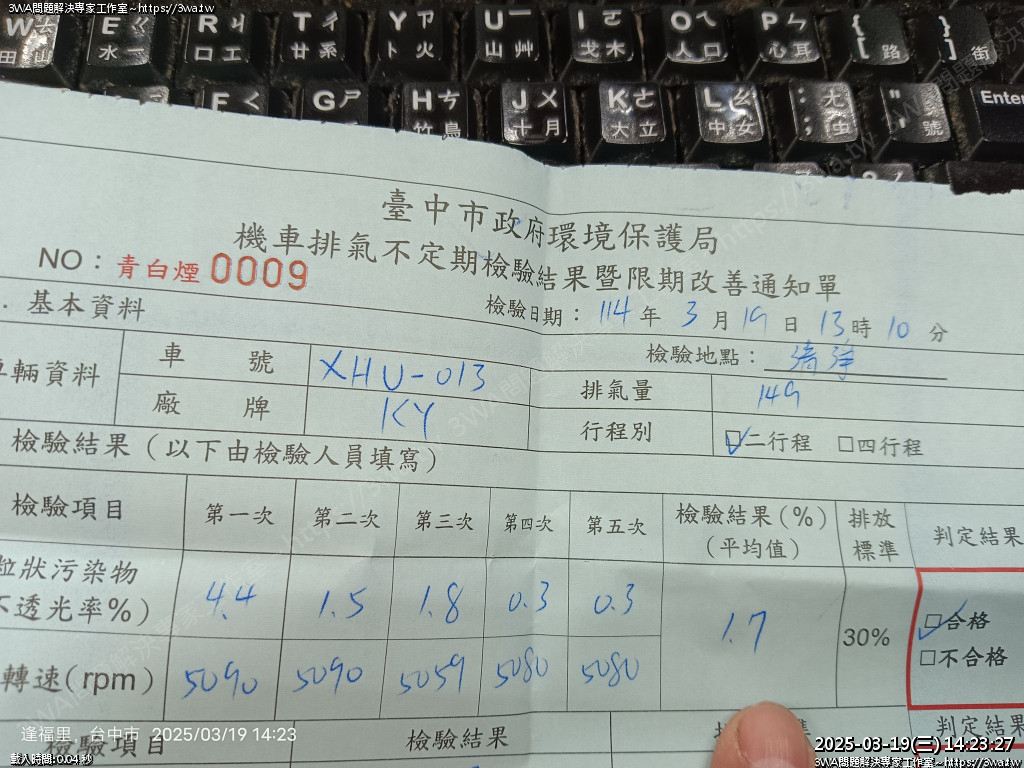 3WA問題解決專家工作室~https://3wa.tw
W ㄊ 田
E ㄍ 水
R ㄐ 口
T ㄔ 廿
Y ㄗ 卜
U ㄧ 山
I ㄛ 戈
O ㄟ 人
P ㄣ 心
{ [
} ]
F ㄑ
G ㄕ
H ㄘ 竹
J ㄨ 十
K ㄜ 大
L ㄠ 中
: ; ㄤ
" '
Enter
臺中市政府環境保護局
機車排氣不定期檢驗結果暨限期改善通知單
NO：青白煙 0009
檢驗日期：114 年 3 月 19 日 13 時 10 分
. 基本資料
檢驗地點：
車輛資料
車 號 XHU-013 排氣量 149
廠 牌 KY 行程別 ☑二行程 □四行程
檢驗結果（以下由檢驗人員填寫）
檢驗項目 第一次 第二次 第三次 第四次 第五次 檢驗結果(%)（平均值） 排放標準 判定結果
粒狀污染物
不透光率%) 4.4 1.5 1.8 0.3 0.3 1.7 30% ☑合格 □不合格
轉速(rpm) 5090 5090 5059 5080 5080
檢驗項目 檢驗結果 準 判定結果
逢福里 台中市 2025/03/19 14:23
2025-03-19(三) 14:23:27
載入時間: 0.04 秒
3WA問題解決專家工作室~https://3wa.tw